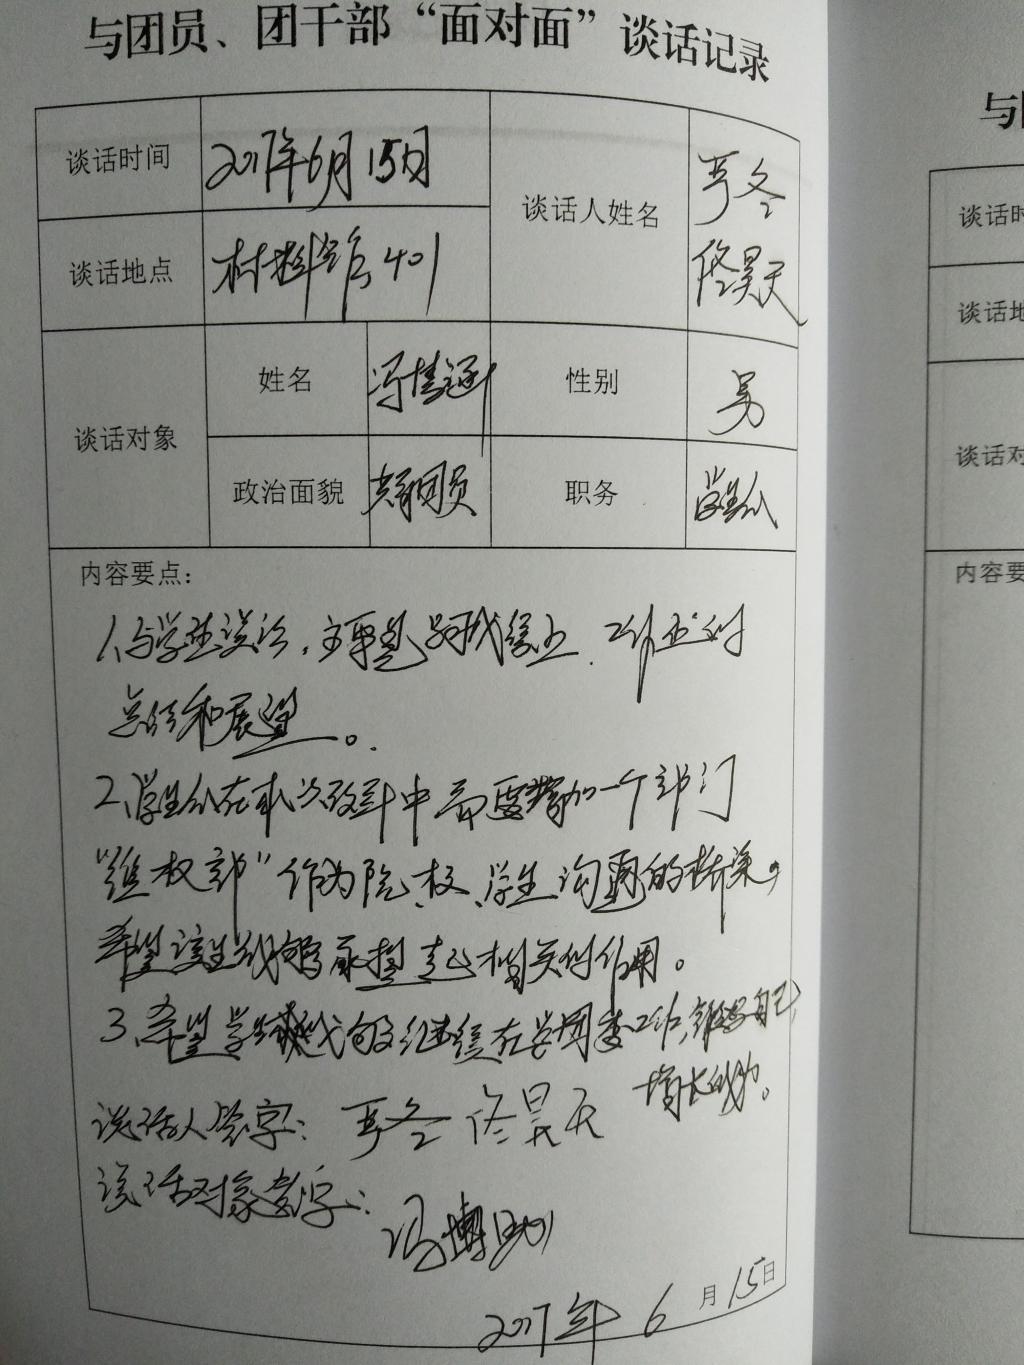 与团员、团干部“面对面”谈话记录
谈话时间 2017年6月15日 谈话人姓名 严冬 佟昊天
谈话地点 材料馆401
谈话对象 姓名 冯博 性别 男
政治面貌 共青团员 职务 学生会
内容要点：
1、与学生谈话，主要是 对
总结和展望。
2、学生会在本次改革中需要增加一个部门
“维权部”作为院、校、学生沟通的桥梁，
希望该生能够承担起相关的作用。
3、希望学生能够继续在学团委工作，锻炼自己，
增长
谈话人签字：严冬 佟昊天
谈话对象签字：冯博
2017年 6 月 15 日
与
谈话时
谈话地
谈话对
内容要